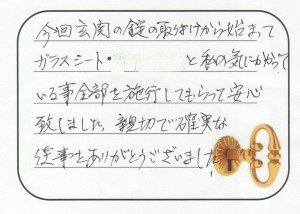 今回玄関の錠の取付けから始まって
ガラスシート・ と私の気にかかって
いる事全部を施行してもらって安心
致しました。親切で確実な
仕事をありがとうございました